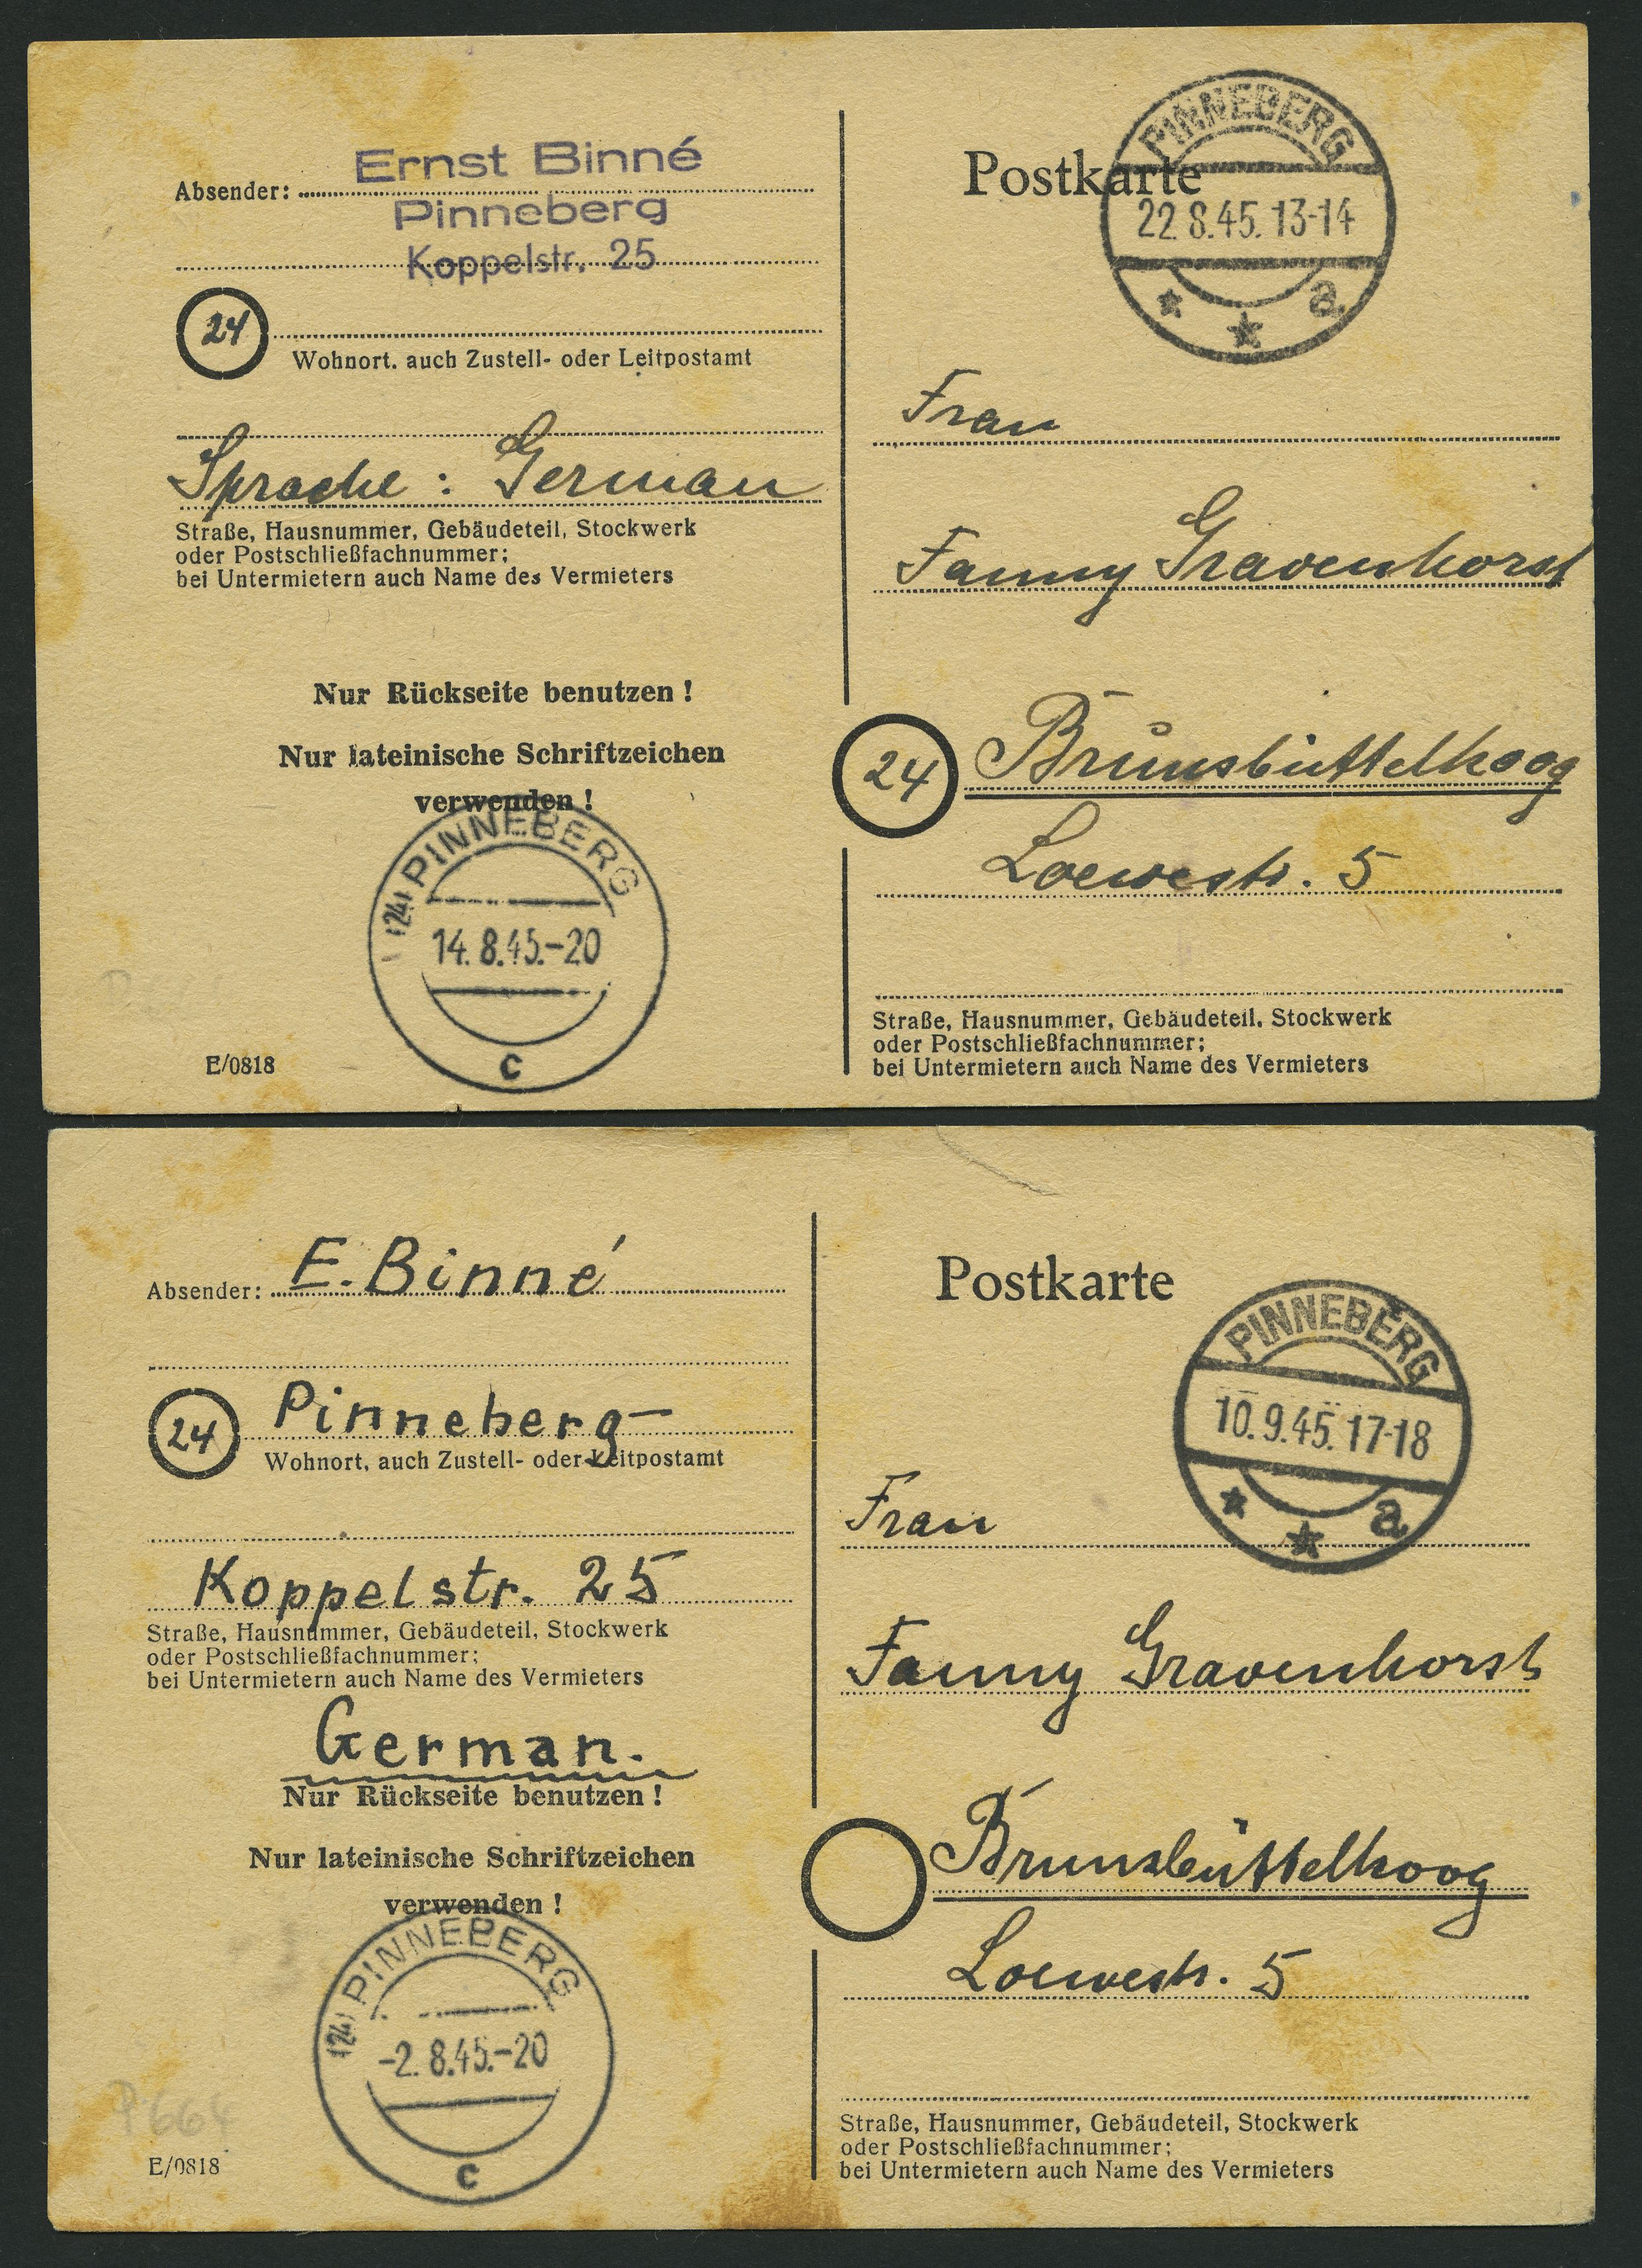 Absender: Ernst Binné
Pinneberg
Koppelstr. 25
24
Wohnort, auch Zustell- oder Leitpostamt
Sprache: German
Straße, Hausnummer, Gebäudeteil, Stockwerk
oder Postschließfachnummer;
bei Untermietern auch Name des Vermieters
Nur Rückseite benutzen!
Nur lateinische Schriftzeichen
verwenden!
(24) PINNEBERG
14.8.45.-20
c
E/0818
Postkarte
PINNEBERG
22.8.45.13-14
a
Frau
Fanny Gravenhorst
24 Brunsbüttelkoog
Loewestr. 5
Straße, Hausnummer, Gebäudeteil, Stockwerk
oder Postschließfachnummer;
bei Untermietern auch Name des Vermieters
Absender: E. Binné
24 Pinneberg
Wohnort, auch Zustell- oder Leitpostamt
Koppelstr. 25
Straße, Hausnummer, Gebäudeteil, Stockwerk
oder Postschließfachnummer;
bei Untermietern auch Name des Vermieters
German.
Nur Rückseite benutzen!
Nur lateinische Schriftzeichen
verwenden!
(24) PINNEBERG
-2.8.45.-20
c
P664
E/0818
Postkarte
PINNEBERG
10.9.45.17-18
a
Frau
Fanny Gravenhorst
Brunsbüttelkoog
Loewestr. 5
Straße, Hausnummer, Gebäudeteil, Stockwerk
oder Postschließfachnummer;
bei Untermietern auch Name des Vermieters